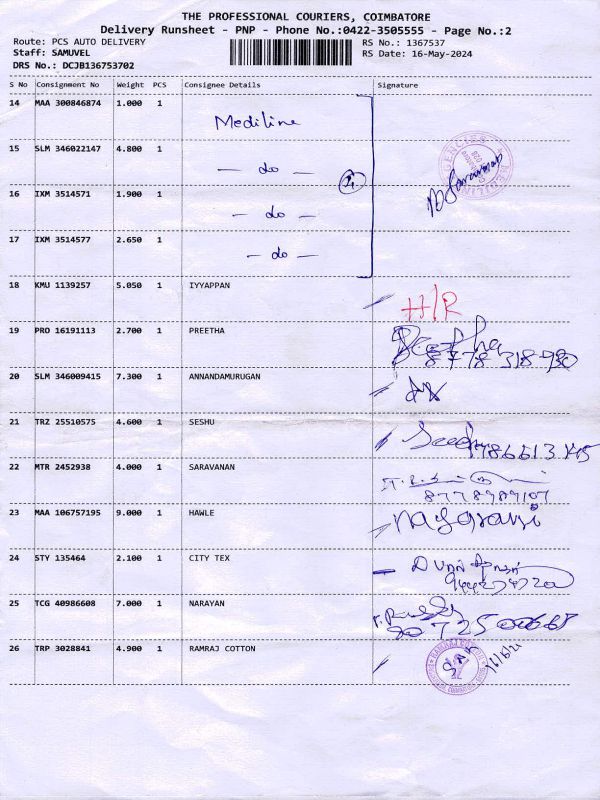 THE PROFESSIONAL COURIERS, COIMBATORE
Delivery Runsheet - PNP - Phone No.:0422-3505555 - Page No.:2
Route: PCS AUTO DELIVERY
RS No.: 1367537
Staff: SAMUVEL
RS Date: 16-May-2024
DRS No.: DCJB136753702
S No Consignment No Weight PCS Consignee Details Signature
14 MAA 300846874 1.000 1 Mediline
15 SLM 346022147 4.800 1 — do —
16 IXM 3514571 1.900 1 — do —
17 IXM 3514577 2.650 1 — do —
18 KMU 1139257 5.050 1 IYYAPPAN H/R
19 PRO 16191113 2.700 1 PREETHA
8778 318 930
20 SLM 346009415 7.300 1 ANNANDAMURUGAN
21 TRZ 25510575 4.600 1 SESHU
22 MTR 2452938 4.000 1 SARAVANAN
23 MAA 106757195 9.000 1 HAWLE
24 STY 135464 2.100 1 CITY TEX
25 TCG 40986608 7.000 1 NARAYAN
26 TRP 3028841 4.900 1 RAMRAJ COTTON